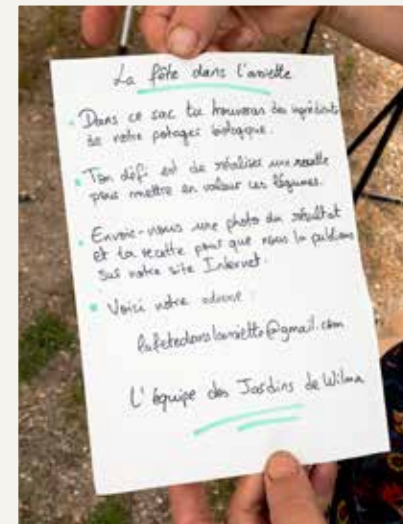 La fête dans l'assiette
• Dans ce sac tu trouveras des ingrédients
de notre potager biologique.
• Ton défi est de réaliser une recette
pour mettre en valeur ces légumes.
• Envoie-nous une photo du résultat
et ta recette pour que nous la publions
sur notre site Internet.
• Voici notre adresse :
lafetedanslassiette@gmail.com
L'équipe des Jardins de Wilma